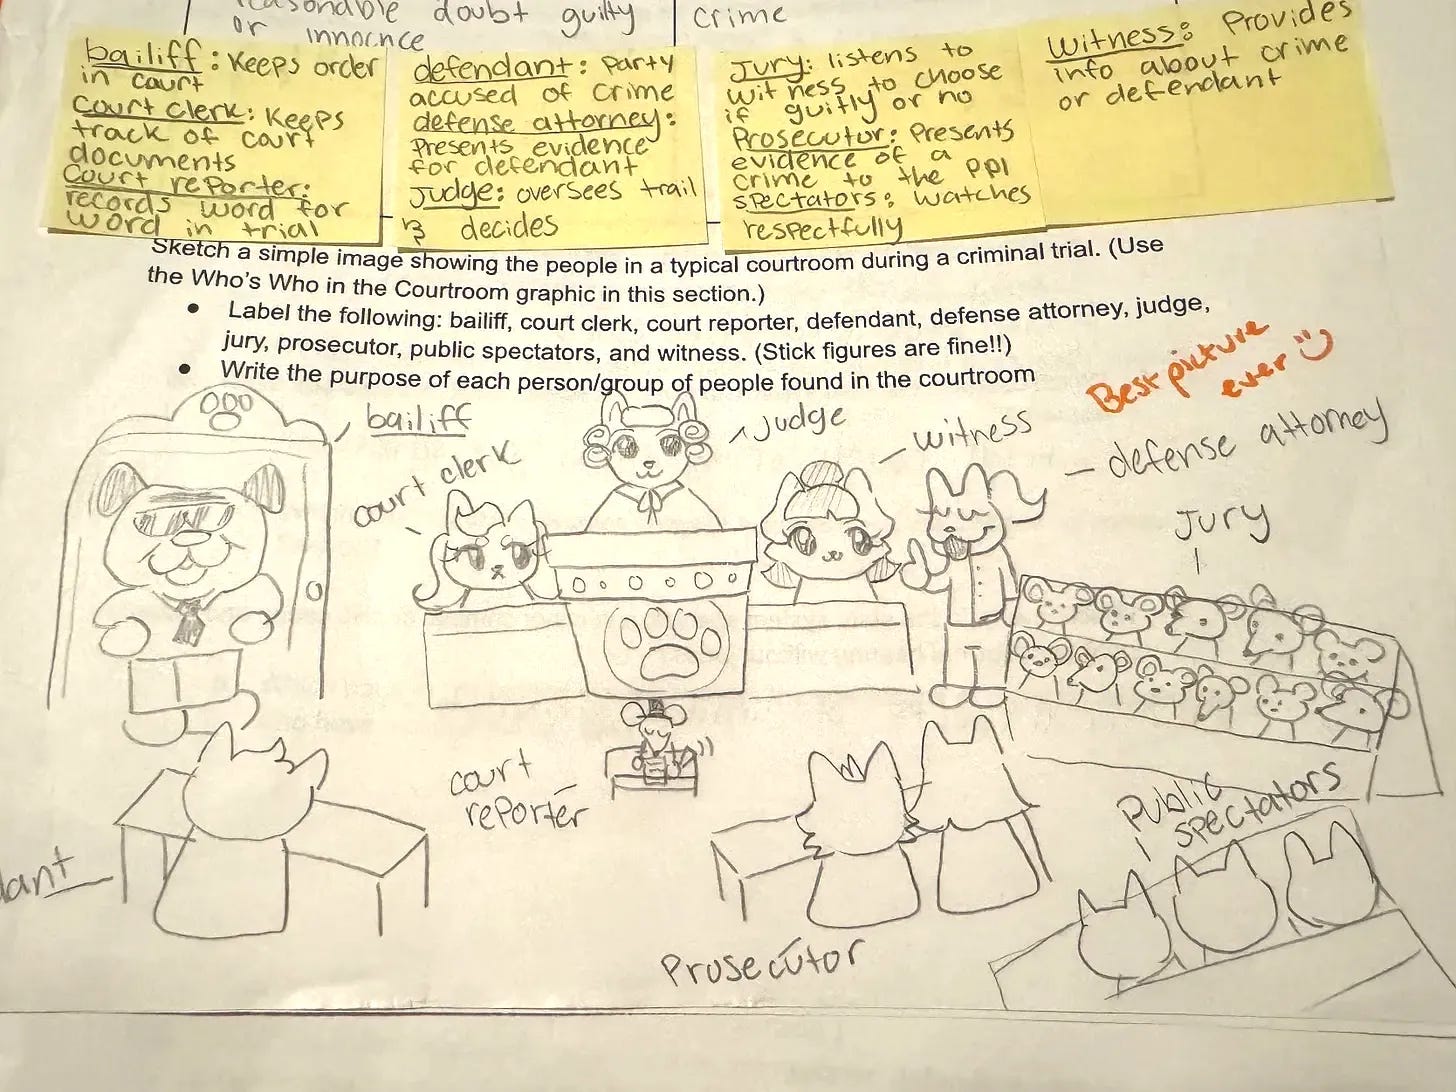 reasonable doubt guilty
or innocnce
crime
bailiff: Keeps order
in court
Court clerk: Keeps
track of court
documents
Court reporter:
records word for
word in trial
defendant: Party
accused of crime
defense attorney:
Presents evidence
for defendant
Judge: oversees trail
& decides
Jury: listens to
witness to choose
if guitly or no
Prosecutor: Presents
evidence of a
crime to the ppl
spectators: watches
respectfully
Witness: Provides
info about crime
or defendant
Sketch a simple image showing the people in a typical courtroom during a criminal trial. (Use
the Who's Who in the Courtroom graphic in this section.)
● Label the following: bailiff, court clerk, court reporter, defendant, defense attorney, judge,
jury, prosecutor, public spectators, and witness. (Stick figures are fine!!)
● Write the purpose of each person/group of people found in the courtroom
Best picture
ever :)
bailiff
Judge
witness
defense attorney
court clerk
Jury
court
reporter
Public
spectators
dant
Prosecutor